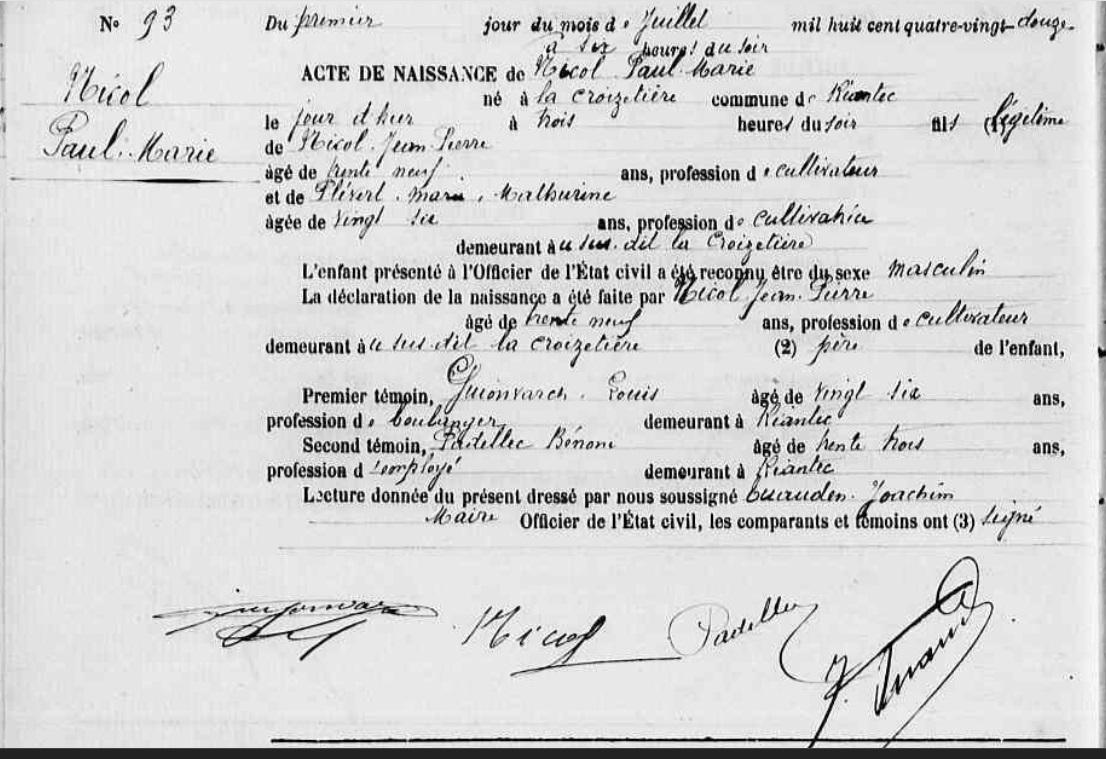 N° 93 Du premier jour du mois de Juillet mil huit cent quatre-vingt-douze
à six heures du soir
Nicol
Paul-Marie
ACTE DE NAISSANCE de Nicol Paul-Marie
né à la croizetière commune de Riantec
le jour d'hier à trois heures du soir fils (1) légitime
de Nicol Jean Pierre
âgé de trente neuf ans, profession de cultivateur
et de Plévert marie Mathurine
âgée de vingt six ans, profession de cultivatrice
demeurant au sus dit la Croizetière
L'enfant présenté à l'Officier de l'État civil a été reconnu être du sexe masculin
La déclaration de la naissance a été faite par Nicol Jean Pierre
âgé de trente neuf ans, profession de cultivateur
demeurant au sus dit la croizetière (2) père de l'enfant,
Premier témoin, Guionvarch Louis âgé de vingt six ans,
profession de boulanger demeurant à Riantec
Second témoin, Padellec Bénoni âgé de trente trois ans,
profession d'employé demeurant à Riantec
Lecture donnée du présent dressé par nous soussigné Joachim
Maire Officier de l'État civil, les comparants et témoins ont (3) signé
Nicol Padellec